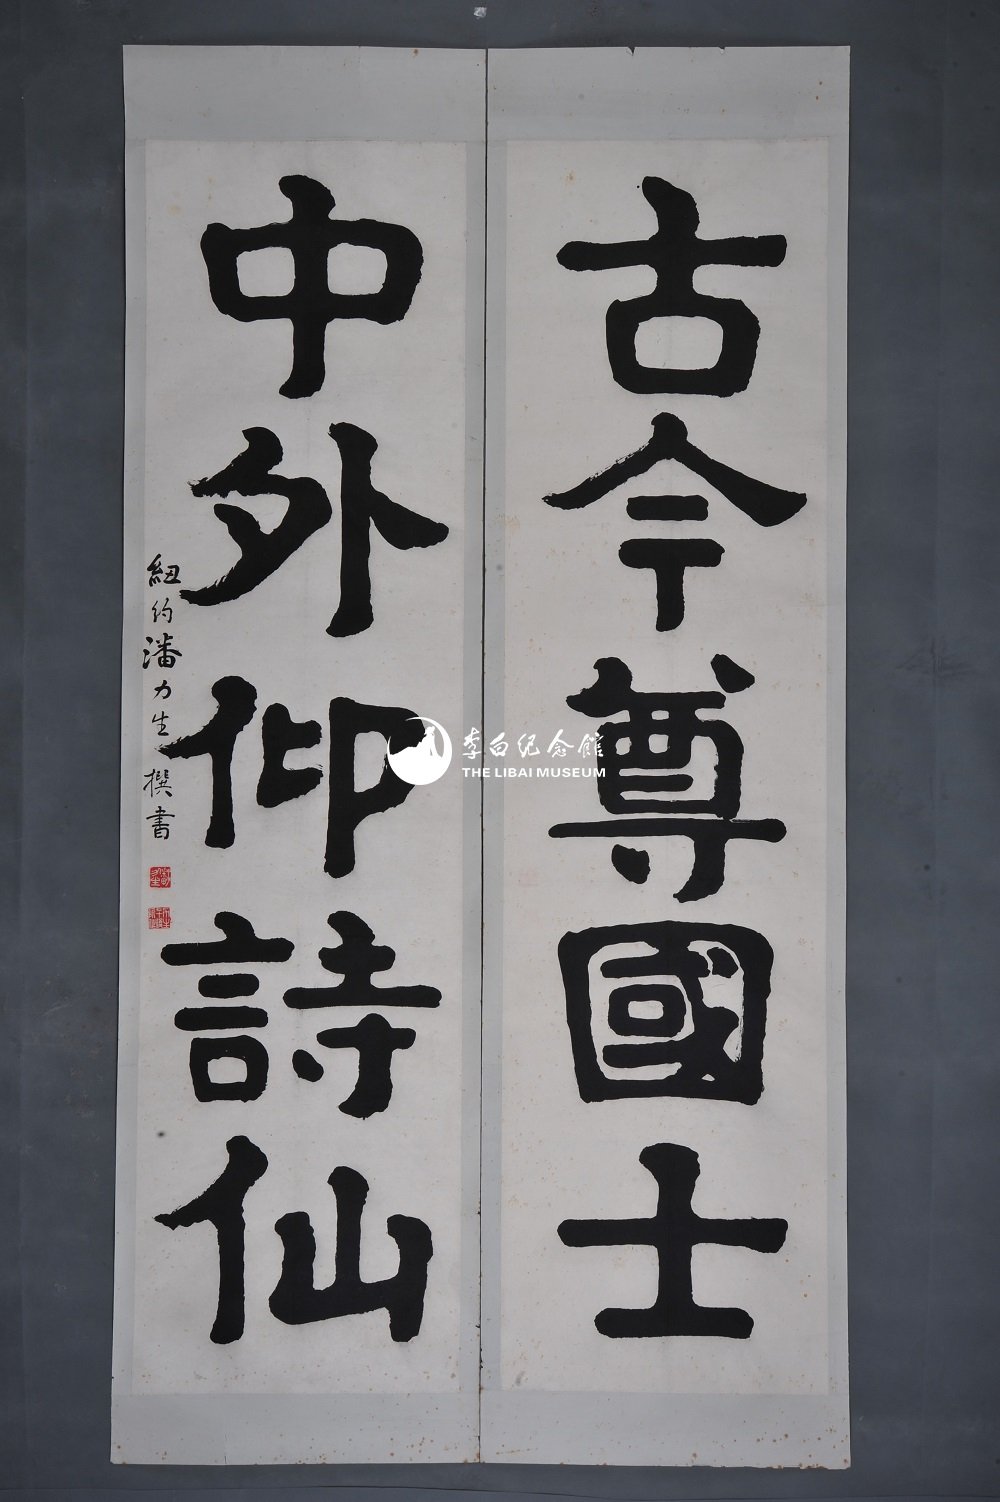 古今尊國士
中外仰詩仙
紐約潘力生撰書
李白纪念館
THE LIBAI MUSEUM